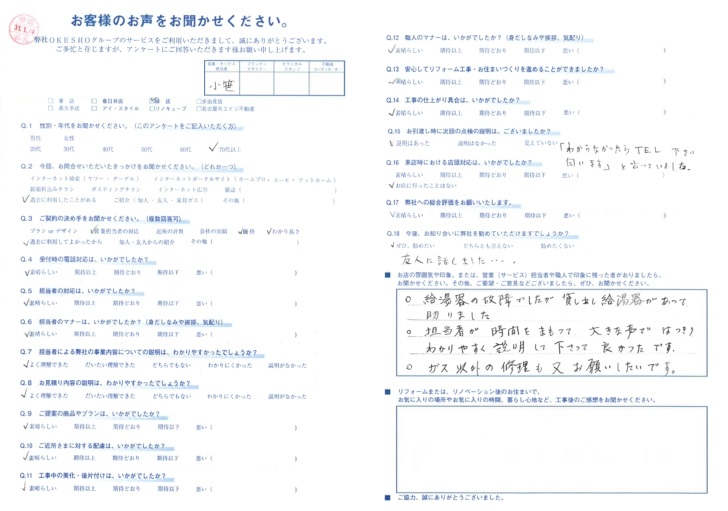 お客様のお声をお聞かせください。
弊社OKESHOグループのサービスをご利用いただきまして、誠にありがとうございます。
ご多忙と存じますが、アンケートにご回答いただきます様お願い申し上げます。
小笹
本店 春日井店 店 多治見店
長久手店 アイ・スタイル リノキューブ 名古屋市エイジ不動産
Q.1 性別・年代をお聞かせください。（このアンケートをご記入いただく方）
男性 女性
20代 30代 40代 50代 60代 ✓70代以上
Q.2 今回、お問合せいただいたきっかけをお聞かせください。（どれか一つ）
インターネット検索（ヤフー・グーグル） インターネットポータルサイト（ホームプロ・スーモ・アットホーム）
新聞折込みチラシ ポスティングチラシ インターネット広告 雑誌（ ）
✓過去に利用したことがある ご紹介（知人・友人・ ） その他（ ）
Q.3 ご契約の決め手をお聞かせください。（複数回答可）
プラン or デザイン ✓営業担当者の対応 近所の評判 会社の実績 ✓価格 ✓わかり易さ
✓過去に利用してよかったから 知人・友人からの紹介 その他（ ）
Q.4 受付時の電話対応は、いかがでしたか？
✓素晴らしい 期待以上 期待どおり 期待以下 悪い（ ）
Q.5 担当者の対応は、いかがでしたか？
✓素晴らしい 期待以上 期待どおり 期待以下 悪い（ ）
Q.6 担当者のマナーは、いかがでしたか？（身だしなみや挨拶、気配り）
✓素晴らしい 期待以上 期待どおり 期待以下 悪い（ ）
Q.7 担当者による弊社の事業内容についての説明は、わかりやすかったでしょうか？
✓よく理解できた だいたい理解できた どちらでもない わかりにくかった 説明がなかった
Q.8 お見積り内容の説明は、わかりやすかったでしょうか？
✓よく理解できた だいたい理解できた どちらでもない わかりにくかった 説明がなかった
Q.9 ご提案の商品やプランは、いかがでしたか？
✓素晴らしい 期待以上 期待どおり 期待以下 悪い（ ）
Q.10 ご近所さまに対する配慮は、いかがでしたか？
✓素晴らしい 期待以上 期待どおり 期待以下 悪い（ ）
Q.11 工事中の美化・後片付けは、いかがでしたか？
✓素晴らしい 期待以上 期待どおり 期待以下 悪い（ ）
Q.12 職人のマナーは、いかがでしたか？（身だしなみや挨拶、気配り）
✓素晴らしい 期待以上 期待どおり 期待以下 悪い（ ）
Q.13 安心してリフォーム工事・お住まいづくりを進めることができましたか？
✓素晴らしい 期待以上 期待どおり 期待以下 悪い（ ）
Q.14 工事の仕上がり具合は、いかがでしたか？
✓素晴らしい 期待以上 期待どおり 期待以下 悪い（ ）
Q.15 お引渡し時に次回の点検の説明は、ございましたか？
✓説明はあった 説明はなかった 覚えていない
「わからなかったらTEL下さい
伺います」と言っていましたね。
Q.16 来店時における店頭対応は、いかがでしたか？
素晴らしい 期待以上 期待どおり 期待以下 悪い（ ）
✓お店に行ったことはない
Q.17 弊社への総合評価をお願いいたします。
✓素晴らしい 期待以上 期待どおり 期待以下 悪い（ ）
Q.18 今後、お知り合いに弊社を勧めていただけますでしょうか？
✓ぜひ、勧めたい どちらとも言えない 勧めたくない
友人に話しました・・・。
■ お店の雰囲気や印象、または、営業（サービス）担当者や職人で印象に残った者がおりましたら、
お聞かせください。その他、ご要望・ご意見などございましたら、ぜひ、お聞かせください。
○ 給湯器の故障でしたが貸し出し給湯器があって
助りました
○ 担当者が時間をまもって大きな声ではっきり
わかりやすく説明して下さって良かったです.
○ ガス以外の修理も又お願いしたいです。
■ リフォームまたは、リノベーション後のお住まいで、
お気に入りの場所やお気に入りの時間、暮らし心地など、工事後のご感想をお聞かせください。
■ ご協力、誠にありがとうございました。